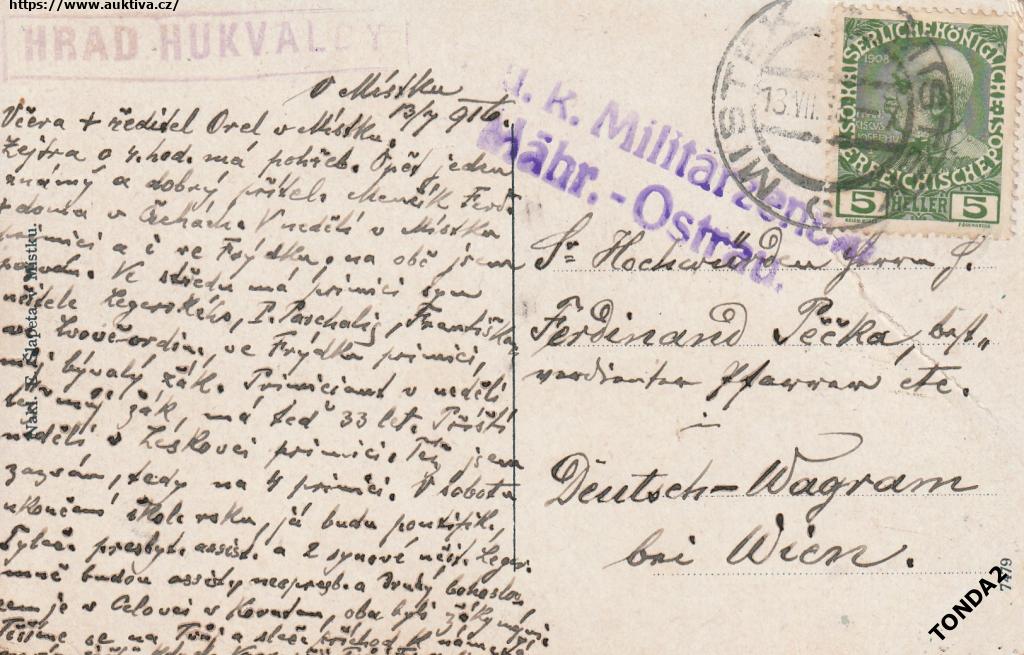 https://www.auktiva.cz/
HRAD HUKVALDY
V Místku
13/7 916.
Včera + ředitel Orel v Místku.
Zejtra o 4. hod. má pohřeb. Opět jeden
známý a dobrý přítel. Menčík Ferd.
+ doma v Čechách. V neděli v Místku
primici a i ve Frýdku, na obě jsem
pozván. Ve středu má primici syn
učitele Legerského, P. Paschalis, Františkán
ve Frýdku primici,
můj bývalý žák. Primiciant v neděli
též můj žák, má teď 33 let. Příští
neděli v Leskovci primici. Též jsem
zazván, tedy na 4 primici. V sobotu
ukončení škol. roku, já budu pontifik.
presbyt. assist. a 2 synové učit. Leger.
mně budou assisty neopresb. a druhý bohoslov,
sem je v Celovci v oba byli žáky moji
Těšíme se na Tvůj a příchod k nám
Nakl. F. Šlapeta, Místku.
K. k. Militärzensur
Mähr.-Ostrau.
MISTEK
13.VII.
MÍSTEK
KAISERLICHE KÖNIGLICHE
ÖSTERREICHISCHE POST
1908
5 HELLER 5
Sr Hochwürden Herrn P.
Ferdinand Pěčka, best„
verdienter Pfarrer etc.
in
Deutsch-Wagram
bei Wien.
7479
TONDA2